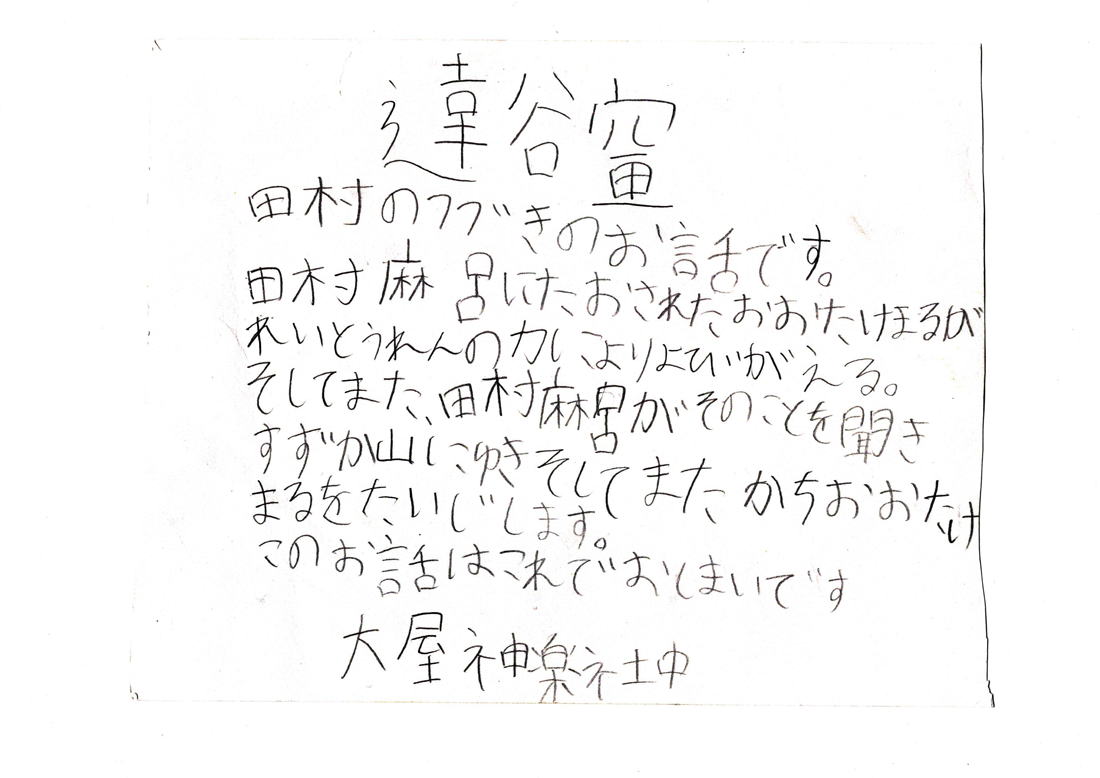 達谷窟
田村のつづきのお話です。
田村麻呂にたおされたおおたけまるが
れいとうれんの力によりよびがえる。
そしてまた、田村麻呂がそのことを聞き
すずか山にゆきそしてまたかちおおたけ
まるをたいじします。
このお話はこれでおしまいです
大屋神楽社中